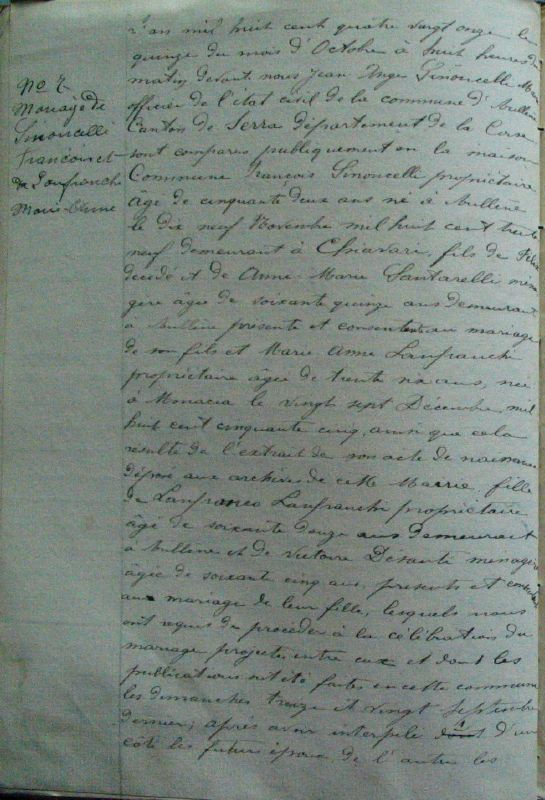 No 7
Mariage de
Sinoncelli
François et
de Lanfranchi
Marie-Anne
L'an mil huit cent quatre vingt onze le
quinze du mois d'Octobre à huit heures du
matin devant nous Jean Ange Sinoncelle Maire
officier de l'état civil de la commune d'Aullène
Canton de Serra département de la Corse
sont comparus publiquement en la maison
Commune François Sinoncelle propriétaire
âgé de cinquante deux ans né à Aullène
le dix neuf Novembre mil huit cent trente
neuf demeurant à Chiavari, fils de
décédé et de Anne-Marie Santarelli ména
gère âgée de soixante quinze ans demeurant
à Aullène présente et consentante au mariage
de son fils et Marie Anne Lanfranchi
propriétaire âgée de trente six ans, née
à Monacia le vingt sept Décembre mil
huit cent cinquante cinq, ainsi que cela
résulte de l'extrait de son acte de naissance
déposé aux archives de cette Mairie, fille
de Lanfranco Lanfranchi propriétaire
âgé de soixante douze ans demeurant
à Aullène et de Victoire Désanti ménagère
âgée de soixante cinq ans, présents et consentant
au mariage de leur fille, lesquels nous
ont requis de procéder à la célébration du
mariage projeté entre eux et dont les
publications ont été faites en cette commune
les dimanches treize et vingt Septembre
dernier; après avoir interpelé d'un
côté les futurs époux, de l'autre les